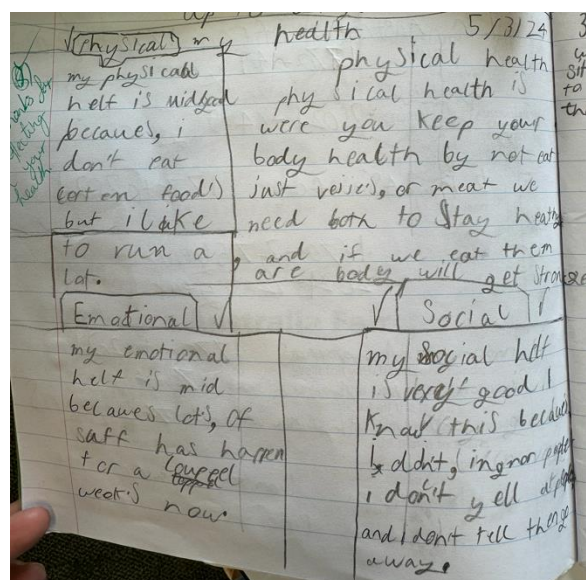 my health 5/3/24
Physical
my physical
helf is midbad
becaues, i
don't eat
food's
but i like
to run a
lot.
physical health
physical health is
were you keep your
body health by not eat
just veiies, or meat we
need both to stay heathy
, and if we eat them
are body will get stronger
Emotional
my emotional
helf is mid
becawes lot's, of
saff has happen
for a coupel
week's now.
Social
my social helf
is very good I
Know this because
I didn't, ingnon people
i don't yell at people
and I don't tell them go
away.
your
health